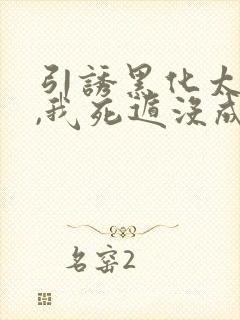 引誘黑化太
,我死遁没成
名窑2